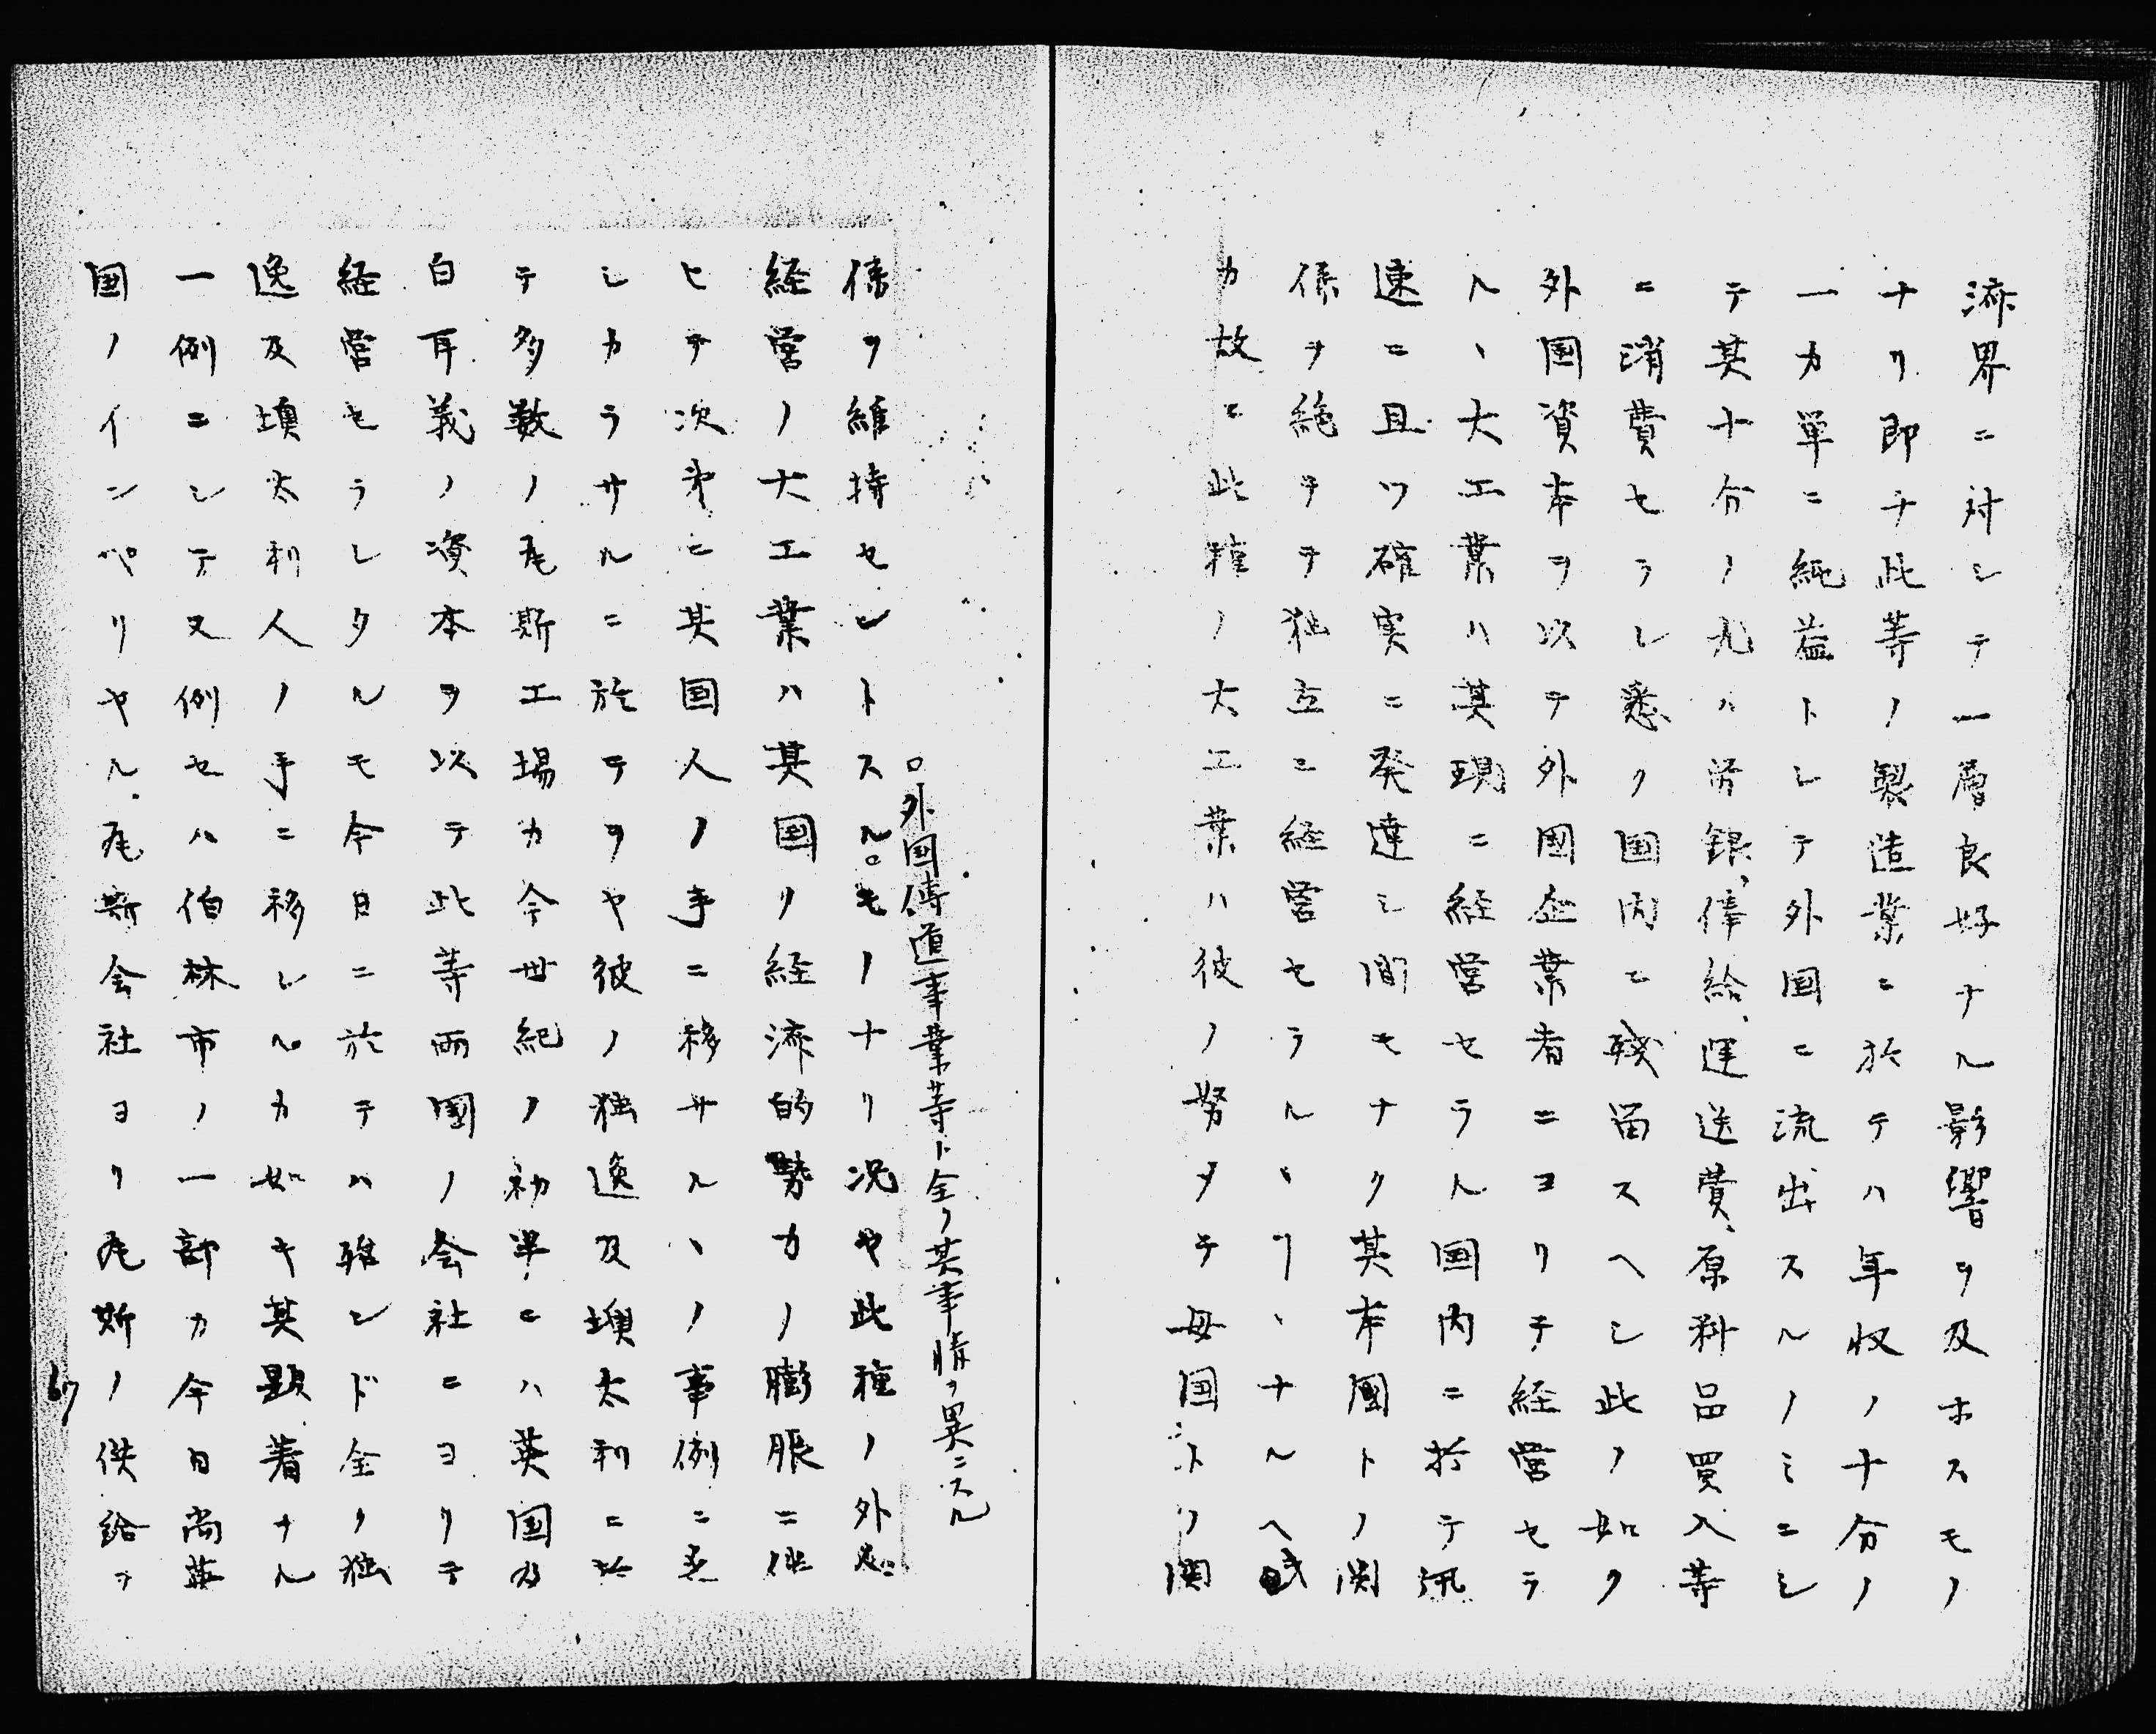 済界ニ対シテ一層良好ナル影響ヲ及ホスモノ
ナリ即チ此等ノ製造業ニ於テハ年収ノ十分ノ
一カ単ニ純益トシテ外国ニ流出スルノミニシ
テ其十分ノ九ハ労銀、俸給、運送費、原料品買入等
ニ消費セラレ悉ク国内ニ残留スヘシ此ノ如ク
外国資本ヲ以テ外国企業者ニヨリテ経営セラ
ルヽ大工業ハ其現ニ経営セラル国内ニ於テ迅
速ニ且ツ確実ニ発達シ間モナク其本国トノ関
係ヲ絶チテ独立ニ経営セラルヽヿヽナルヘ
カ故ニ此種ノ大工業ハ彼ノ努メテ母国トノ関
係ヲ維持セントスル。モノナリ况ヤ此種ノ外
。外国傳道事業等ト全ク其事情ヲ異ニスル
経営ノ大工業ハ其国ノ経済的勢力ノ膨脹ニ伴
ヒテ次第ニ其国人ノ手ニ移サルヽノ事例ニ乏
シカラサルニ於テヲヤ彼ノ独逸及墺太利ニ於
テ多数ノ瓦斯工場カ今世紀ノ初半ニハ英国及
白耳義ノ資本ヲ以テ此等両国ノ会社ニヨリテ
経営セラレタルモ今日ニ於テハ殆ンド全ク独
逸及墺太利人ノ手ニ移レルカ如キ其顕着ナル
一例ニシテ又例セハ伯林市ノ一部カ今日尚英
国ノインペリヤル、瓦斯会社ヨリ瓦斯ノ供給ヲ
67